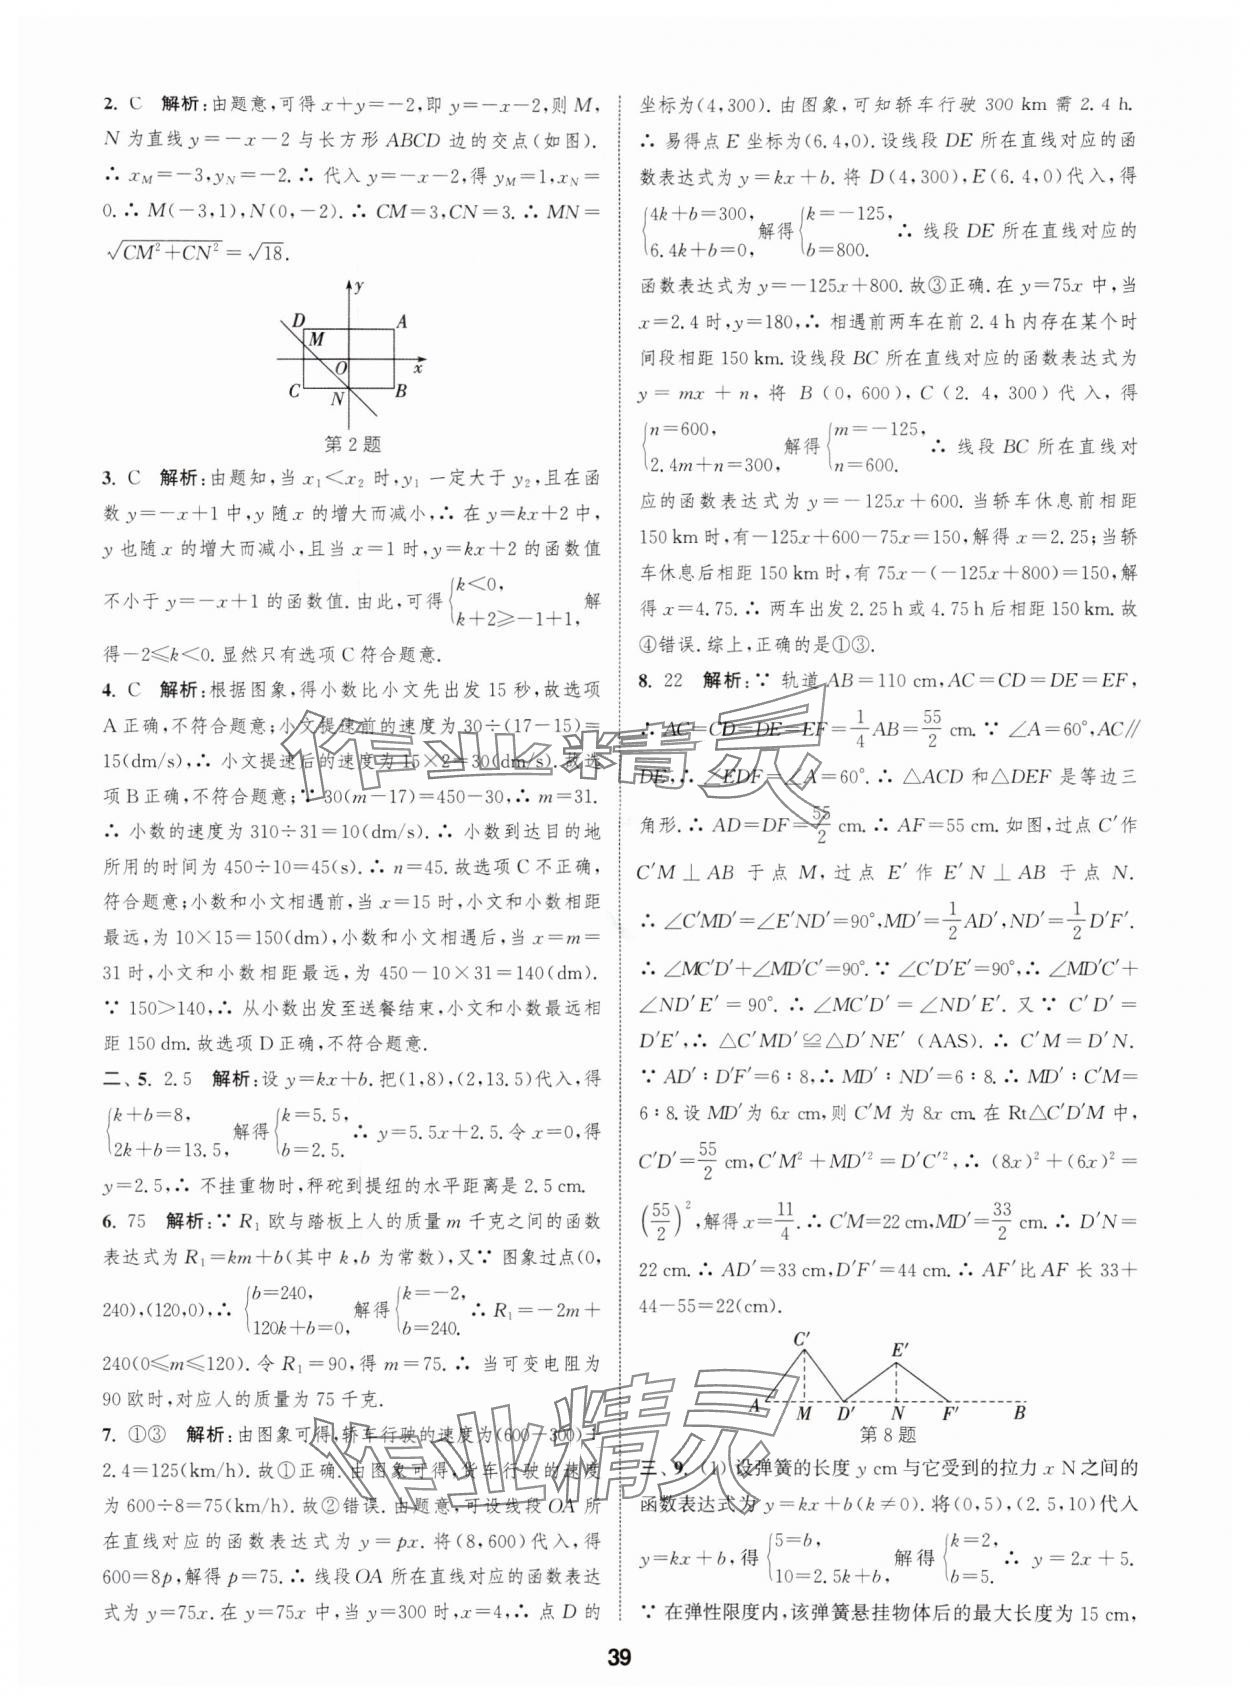 2. C 解析:由题意,可得 x+y=-2,即 y=-x-2,则 M,
N 为直线 y=-x-2 与长方形 ABCD 边的交点(如图).
∴ x_M=-3,y_N=-2.∴ 代入 y=-x-2,得 y_M=1,x_N=
0.∴ M(-3,1),N(0,-2).∴ CM=3,CN=3.∴ MN=
√(CM²+CN²)=√18.
y
D
A
M
O
x
C
N
B
第 2 题
3. C 解析:由题知,当 x₁<x₂ 时,y₁ 一定大于 y₂,且在函
数 y=-x+1 中,y 随 x 的增大而减小,∴ 在 y=kx+2 中,
y 也随 x 的增大而减小,且当 x=1 时,y=kx+2 的函数值
不小于 y=-x+1 的函数值.由此,可得{k<0, k+2≥-1+1, 解
得-2≤k<0.显然只有选项 C 符合题意.
4. C 解析:根据图象,得小数比小文先出发 15 秒,故选项
A 正确,不符合题意;小文提速前的速度为 30÷(17-15)=
15(dm/s),∴ 小文提速后的速度为 15×2=30(dm/s).故选
项 B 正确,不符合题意;∵ 30(m-17)=450-30,∴ m=31.
∴ 小数的速度为 310÷31=10(dm/s).∴ 小数到达目的地
所用的时间为 450÷10=45(s).∴ n=45.故选项 C 不正确,
符合题意;小数和小文相遇前,当 x=15 时,小文和小数相距
最远,为 10×15=150(dm),小数和小文相遇后,当 x=m=
31 时,小文和小数相距最远,为 450-10×31=140(dm).
∵ 150>140,∴ 从小数出发至送餐结束,小文和小数最远相
距 150 dm.故选项 D 正确,不符合题意.
二、5. 2.5 解析:设 y=kx+b.把(1,8),(2,13.5)代入,得
{k+b=8, 2k+b=13.5, 解得{k=5.5, b=2.5. ∴ y=5.5x+2.5.令 x=0,得
y=2.5,∴ 不挂重物时,秤砣到提纽的水平距离是 2.5 cm.
6. 75 解析:∵ R₁ 欧与踏板上人的质量 m 千克之间的函数
表达式为 R₁=km+b(其中 k,b 为常数),又∵ 图象过点(0,
240),(120,0),∴ {b=240, 120k+b=0, 解得{k=-2, b=240. ∴ R₁=-2m+
240(0≤m≤120).令 R₁=90,得 m=75.∴ 当可变电阻为
90 欧时,对应人的质量为 75 千克.
7. ①③ 解析:由图象可得,轿车行驶的速度为(600-300)÷
2.4=125(km/h).故①正确.由图象可得,货车行驶的速度
为 600÷8=75(km/h).故②错误.由题意,可设线段 OA 所
在直线对应的函数表达式为 y=px.将(8,600)代入,得
600=8p,解得 p=75.∴ 线段 OA 所在直线对应的函数表达
式为 y=75x.在 y=75x 中,当 y=300 时,x=4,∴ 点 D 的
坐标为(4,300).由图象,可知轿车行驶 300 km 需 2.4 h.
∴ 易得点 E 坐标为(6.4,0).设线段 DE 所在直线对应的函
数表达式为 y=kx+b.将 D(4,300),E(6.4,0)代入,得
{4k+b=300, 6.4k+b=0, 解得{k=-125, b=800. ∴ 线段 DE 所在直线对应的
函数表达式为 y=-125x+800.故③正确.在 y=75x 中,当
x=2.4 时,y=180,∴ 相遇前两车在前 2.4 h 内存在某个时
间段相距 150 km.设线段 BC 所在直线对应的函数表达式为
y=mx+n,将 B(0,600),C(2.4,300)代入,得
{n=600, 2.4m+n=300, 解得{m=-125, n=600. ∴ 线段 BC 所在直线对
应的函数表达式为 y=-125x+600.当轿车休息前相距
150 km 时,有-125x+600-75x=150,解得 x=2.25;当轿
车休息后相距 150 km 时,有 75x-(-125x+800)=150,解
得 x=4.75.∴ 两车出发 2.25 h 或 4.75 h 后相距 150 km.故
④错误.综上,正确的是①③.
8. 22 解析:∵ 轨道 AB=110 cm,AC=CD=DE=EF,
∴ AC=CD=DE=EF=1/4AB=55/2 cm.∵ ∠A=60°,AC∥
DE,∴ ∠EDF=∠A=60°.∴ △ACD 和△DEF 是等边三
角形.∴ AD=DF=55/2 cm.∴ AF=55 cm.如图,过点 C′作
C′M⊥AB 于点 M,过点 E′作 E′N⊥AB 于点 N.
∴ ∠C′MD′=∠E′ND′=90°,MD′=1/2AD′,ND′=1/2D′F′.
∴ ∠MC′D′+∠MD′C′=90°.∵ ∠C′D′E′=90°,∴ ∠MD′C′+
∠ND′E′=90°.∴ ∠MC′D′=∠ND′E′.又∵ C′D′=
D′E′,∴ △C′MD′≌△D′NE′(AAS).∴ C′M=D′N.
∵ AD′∶D′F′=6∶8,∴ MD′∶ND′=6∶8.∴ MD′∶C′M=
6∶8.设 MD′为 6x cm,则 C′M 为 8x cm.在 Rt△C′D′M 中,
C′D′=55/2 cm,C′M²+MD′²=D′C′²,∴ (8x)²+(6x)²=
(55/2)²,解得 x=11/4.∴ C′M=22 cm,MD′=33/2 cm.∴ D′N=
22 cm.∴ AD′=33 cm,D′F′=44 cm.∴ AF′比 AF 长 33+
44-55=22(cm).
C′
E′
A
M
D′
N
F′
B
第 8 题
三、9. (1) 设弹簧的长度 y cm 与它受到的拉力 x N 之间的
函数表达式为 y=kx+b(k≠0).将(0,5),(2.5,10)代入
y=kx+b,得{5=b, 10=2.5k+b, 解得{k=2, b=5. ∴ y=2x+5.
∵ 在弹性限度内,该弹簧悬挂物体后的最大长度为 15 cm,
39
作业精灵
作业精灵